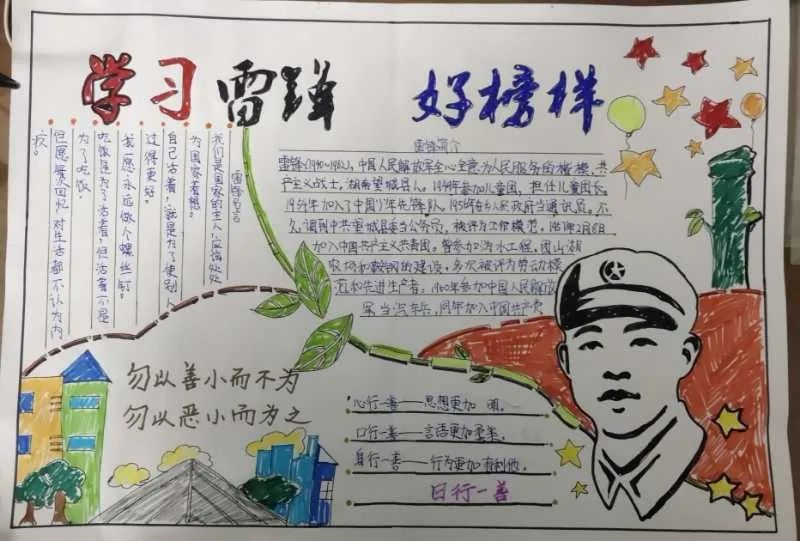 学习雷锋 好榜样
雷锋名言
我们是国家的主人,应该处处
为国家着想。
自己活着,就是为了使别人
过得更好。
我愿永远做个螺丝钉。
吃饭是为了活着,但活着不是
为了吃饭。
但愿每次回忆,对生活都不认为内
疚。
雷锋简介
雷锋(1940~1962),中国人民解放军全心全意为人民服务的楷模,共
产主义战士,湖南望城县人。1949年参加儿童团,担任儿童团长。
1954年加入了中国少年先锋队。1956年在乡人民政府当通讯员,不
久,调到中共望城县委当公务员,被评为工作模范。1957年2月8日
加入中国共产主义共青团。曾参加沩水工程、团山湖
农场和鞍钢的建设,多次被评为劳动模
范和先进生产者。1960年参加中国人民解放
军当汽车兵,同年加入中国共产党
勿以善小而不为
勿以恶小而为之
心行一善——思想更加 。
口行一善——言语更加柔美。
身行一善——行为更加有利他。
日行一善